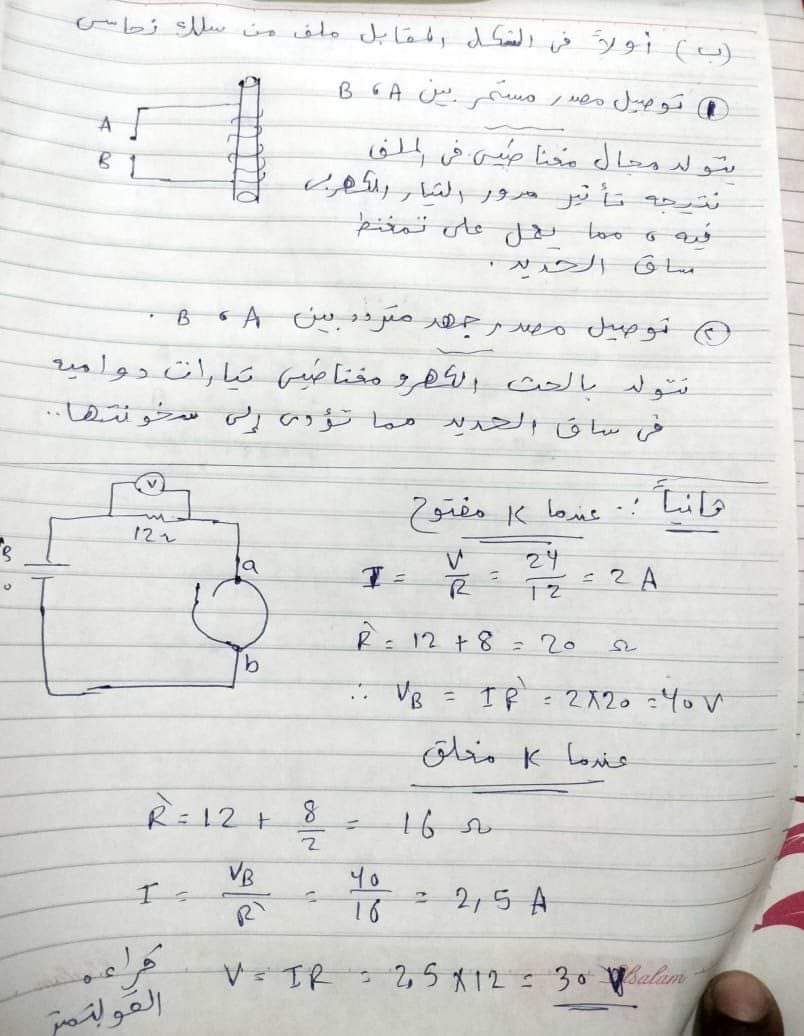 (ب) أولاً في الشكل المقابل ملف من سلك نحاسي
① توصيل مصدر مستمر بين A ، B
A
B
يتولد مجال مغناطيسي في الملف
نتيجه تأثير مرور التيار الكهربي
فيه ، مما يعمل على تمغنط
ساق الحديد .
② توصيل مصدر جهد متردد بين A ، B .
تتولد بالحث الكهرومغناطيسي تيارات دواميه
في ساق الحديد مما تؤدى إلى سخونتها ..
ثانياً : عندما K مفتوح
V
12 Ω
a
b
I = V/R = 24/12 = 2 A
R̀ = 12 + 8 = 20 Ω
∴ VB = IR̀ = 2×20 = 40 V
عندما K مغلق
R̀ = 12 + 8/2 = 16 Ω
I = VB/R̀ = 40/16 = 2,5 A
V = IR = 2,5 × 12 = 30 V
قراءه
الفولتمتر
salam